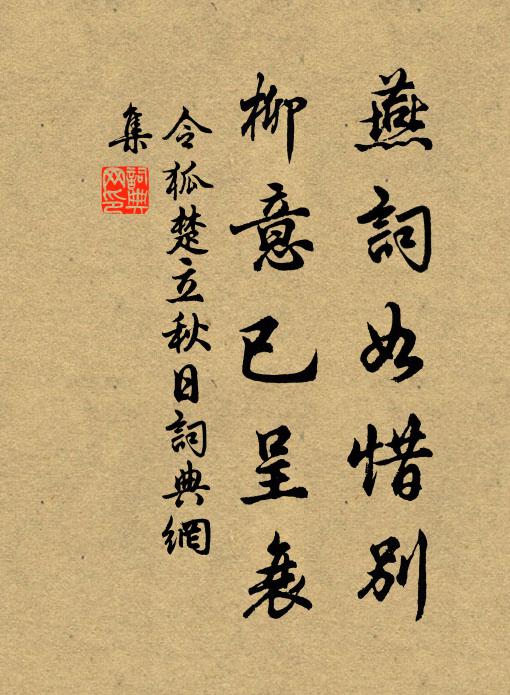 燕詞如惜別
柳意已呈衰
令狐楚立秋日詞典網
集
詞典
网印